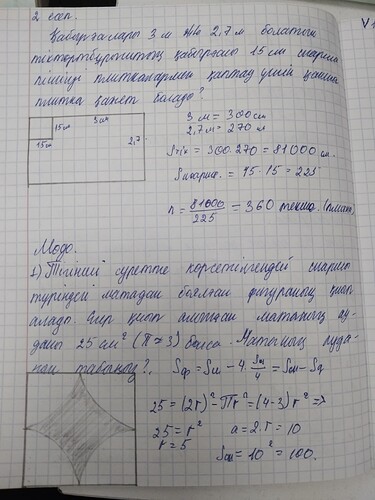 2 есеп.
V1
Қабырғалары 3 м және 2,7 м болатын
тіктөртбұрыштың қабырғасы 15 см шаршы
пішінді плиткалармен қаптау үшін қанша
плитка қажет болады?
15см
3 м
15см
2,7
3 м = 300 см
2,7м = 270 м
= 300·270 = 81000 см.
= 15·15 = 225
n = 81000/225 = 360 текше. (плит
Мода.
1) Тігінші суретте көрсетілгендей шаршы
түріндегі матадан боялған фигураны қиып
алады. Егер қиып алынған матаның ау-
даны 25 см² (π≈3) болса. Матаның ауда-
нын табыңыз?
Sф = Sш - 4·Sд/4 = Sш - Sд
25 = (2r)² - Πr² = (4-3) r² =>
25 = r²
r = 5
a = 2·r = 10
Sш = 10² = 100.